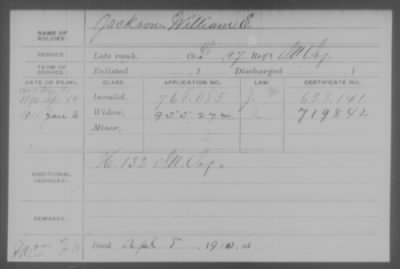 NAME OF SOLDIER: Jackson, William E.
SERVICE: Late rank, Co. 47 Reg't Ill Inf.
TERM OF SERVICE: Enlisted , 1 Discharged , 1
DATE OF FILING. CLASS. APPLICATION NO. LAW. CERTIFICATE NO.
Invalid, 768.085 623.141
Widow, 955.274 719842
Minor,
ADDITIONAL SERVICES: H 132 Ill. Inf.
REMARKS:
Died Apl 5